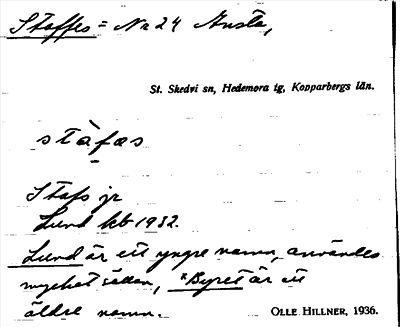 Staffes = No 24 Ansta,
St. Skedvi sn, Hedemora tg, Kopparbergs län.
stàfas
Stafs jr
Lund kb 1932.
Lund är ett yngre namn, användes
mycket sällan, "Byret är ett
äldre namn.
OLLE HILLNER, 1936.